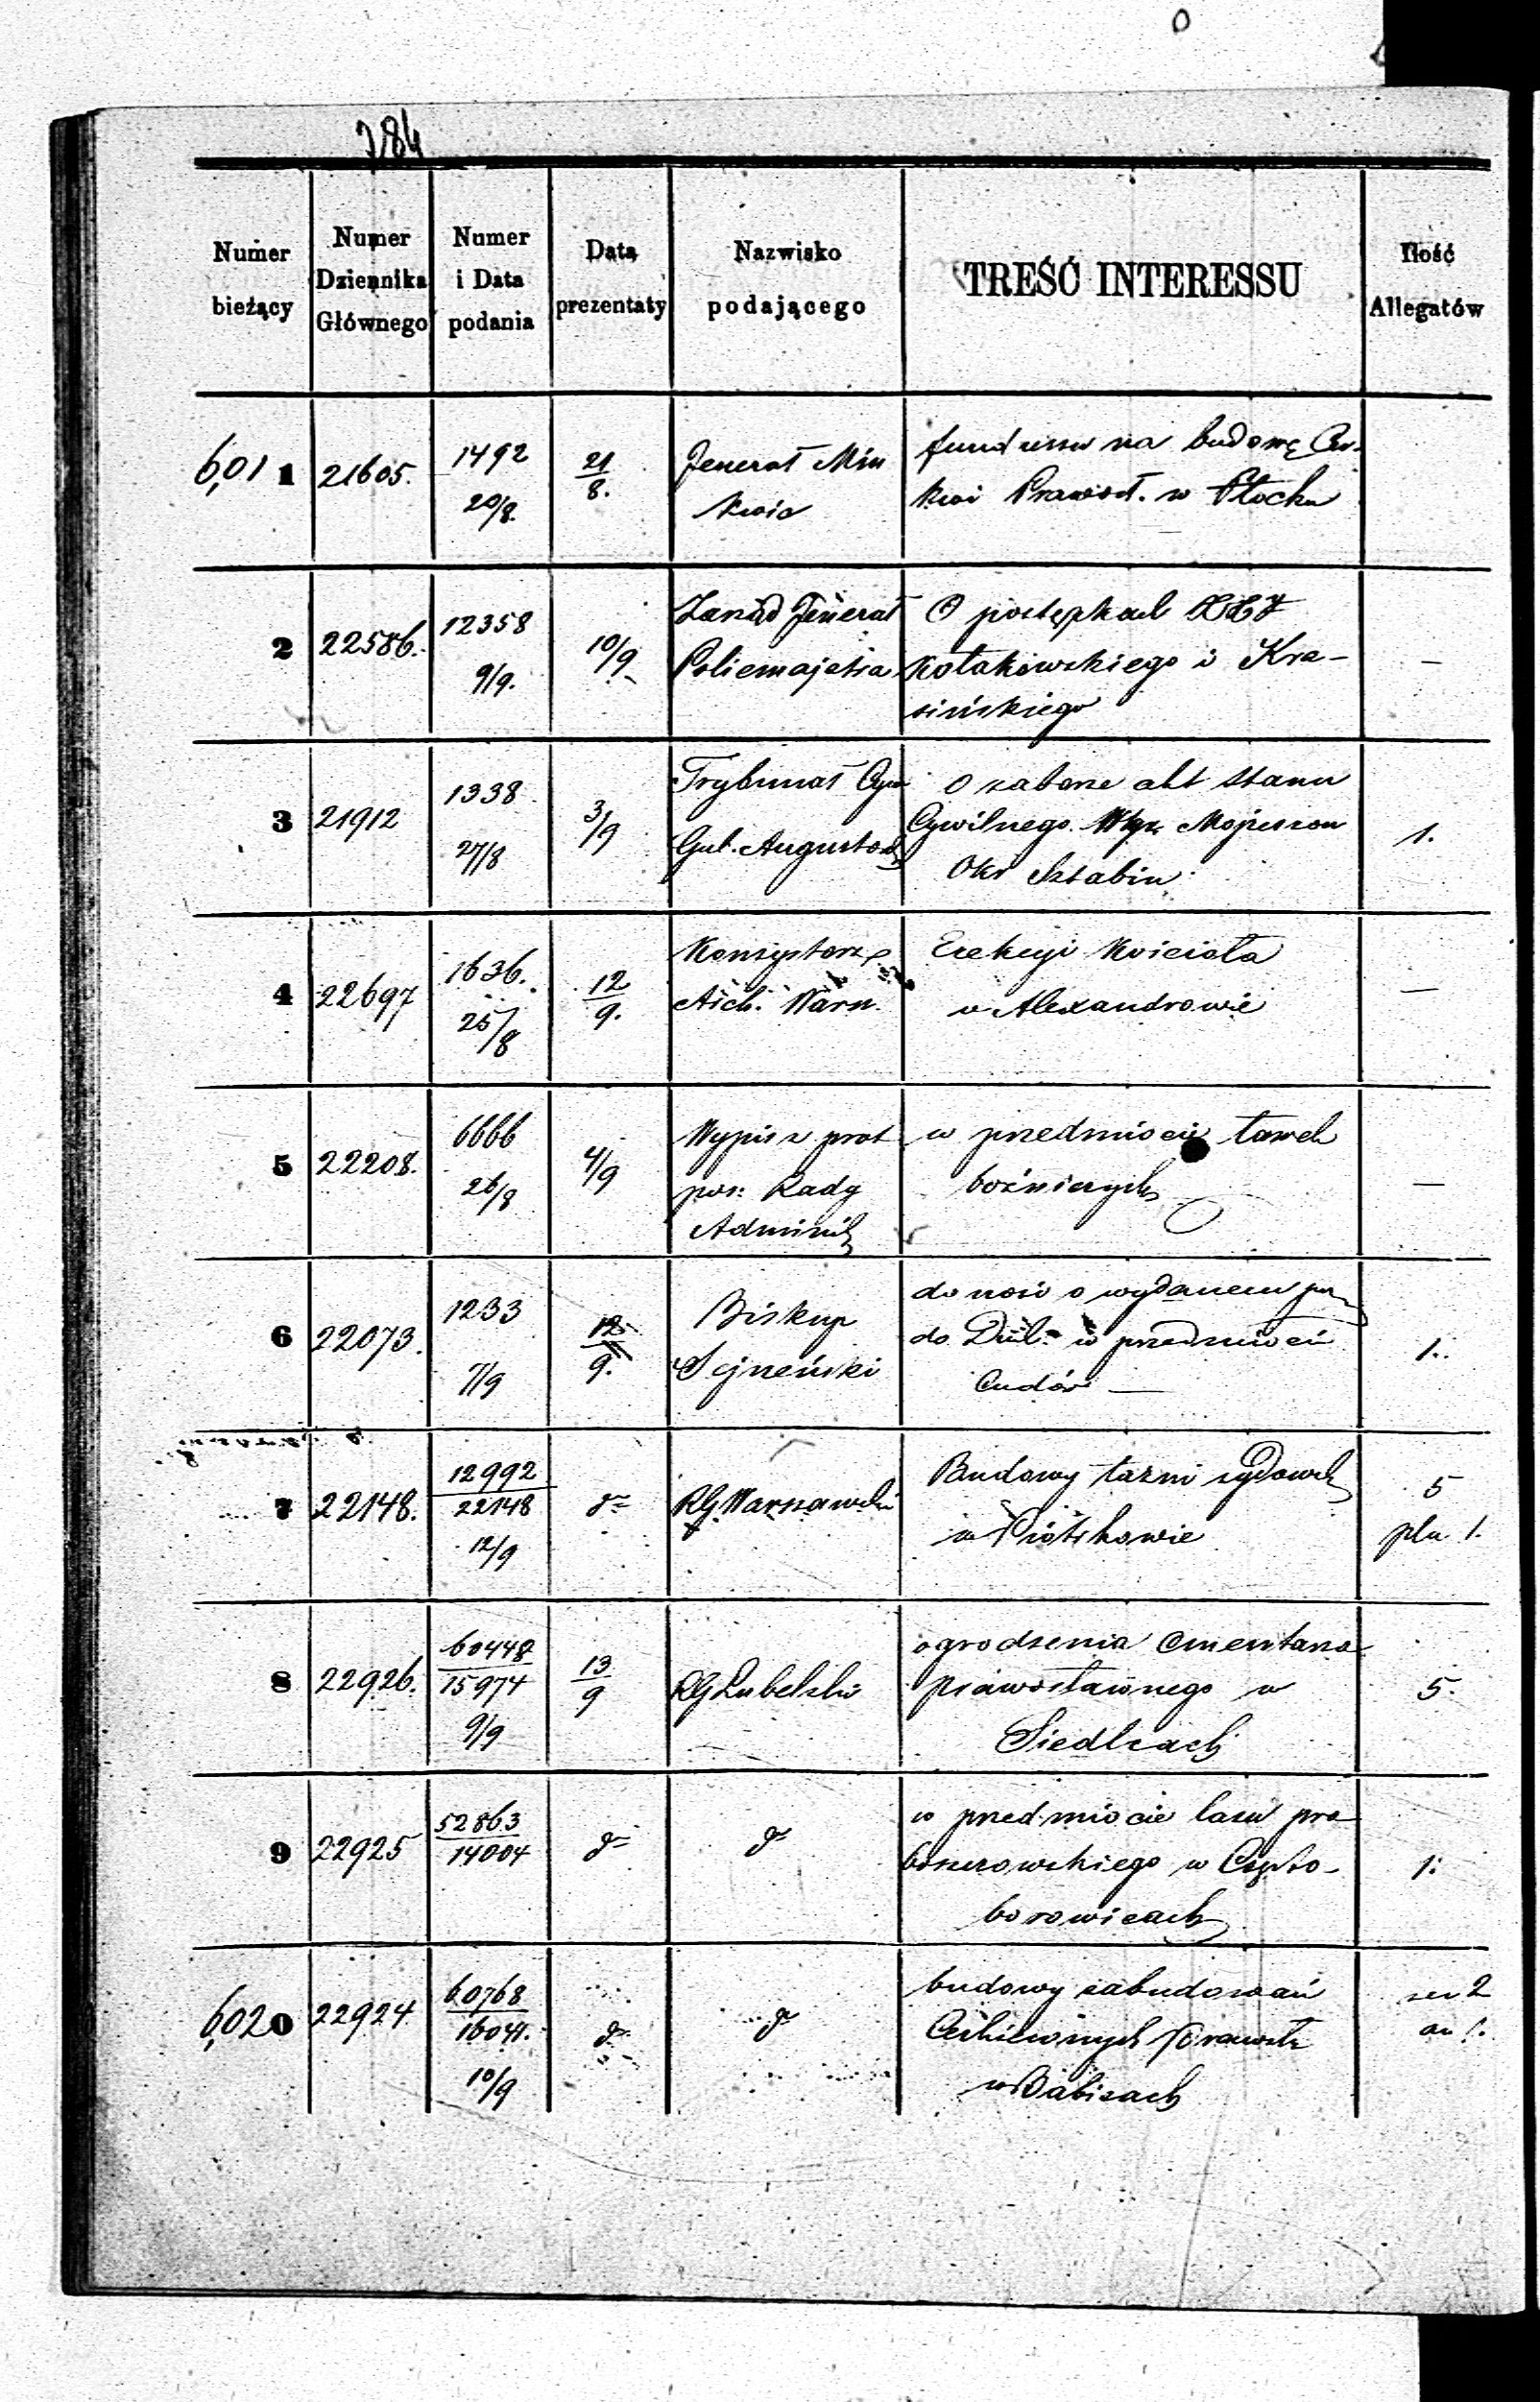 284
Numer bieżący
Numer Dziennika Głównego
Numer i Data podania
Data prezentaty
Nazwisko podającego
TREŚĆ INTERESSU
Ilość Allegatów
6,011
21605.
1492
20/8.
21/8.
Jenerał Min
kwic
funduszu na budowę Cer-
kwi Prawosł. w Płocku
2
22586.
12358
9/9.
10/9
Zarząd Jenerał
Policmajstra
O postępkach XX
Kołakowskiego i Kra-
sińskiego
—
3
21912
1338
27/8
3/9
Trybunał Cyw
Gub. Augustow
O zaborze akt stanu
Cywilnego Wyz. Mojżeszow
Okr Sztabin
1.
4
22697
1636.
25/8
12/9.
Konsystorz
Arch. Warsz.
Erekcyi Kościoła
w Alexandrowie
—
5
22208.
6666
26/8
4/9
Wypis z prot
pos: Rady
Adminis
w przedmiocie ławek
bożniczych
—
6
22073.
1233
7/9
12/9.
Biskup
Sejneński
donosi o wydanem
do Duch. w przedmiocie
Cudów —
1.
7
22148.
12992
22148
12/9
dº
RG Warszawski
Budowy łaźni żydowsk
w Piotrkowie
5
plan 1.
8
22926.
60448
15974
9/9
13/9
RG Lubelski
ogrodzenia Cmentarza
prawosławnego w
Siedlcach
5.
9
22925
52863
14004
dº
dº
w przedmiocie lasu pro
boszczowskiego w
borowicach
1.
6,020
22924
60768
16041.
10/9
dº
dº
budowy zabudowań
Cerkiewnych Prawosł
w Babicach